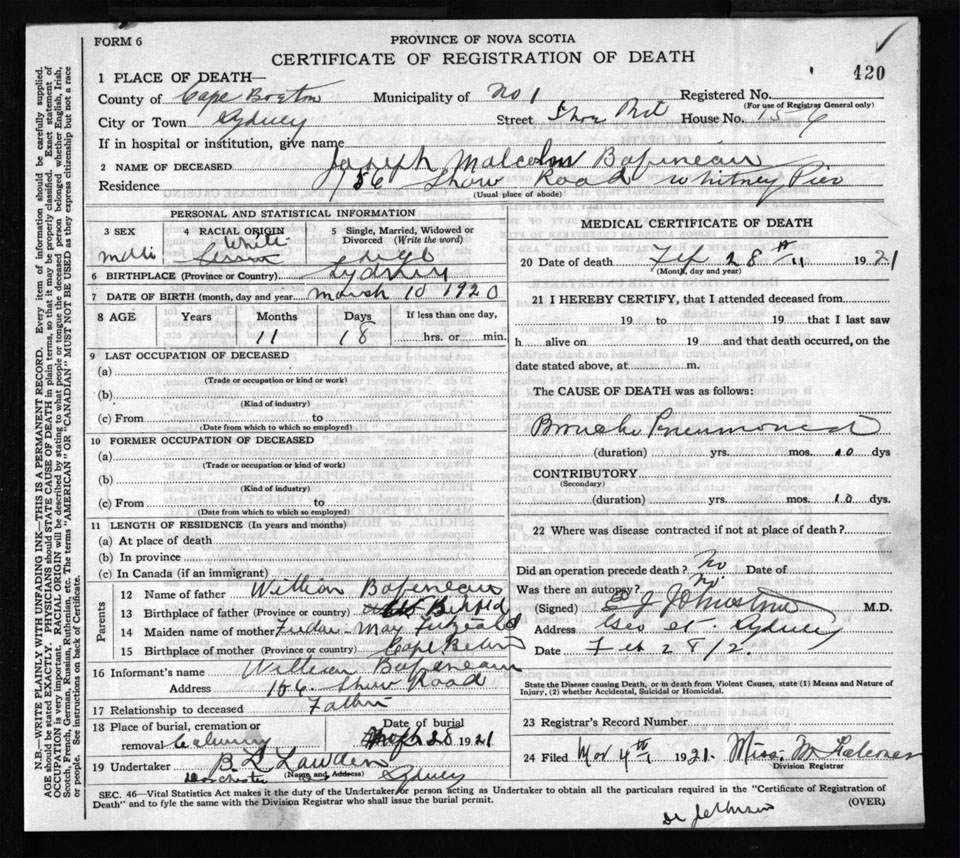 FORM 6
PROVINCE OF NOVA SCOTIA
CERTIFICATE OF REGISTRATION OF DEATH
420
1 PLACE OF DEATH—
County of Cape Breton Municipality of No 1 Registered No.
(For use of Registrar General only)
City or Town Sydney Street House No. 156
If in hospital or institution, give name
2 NAME OF DECEASED Joseph Malcolm
Residence 156 Road Whitney Pier
(Usual place of abode)
PERSONAL AND STATISTICAL INFORMATION
3 SEX 4 RACIAL ORIGIN 5 Single, Married, Widowed or
Divorced (Write the word)
White
6 BIRTHPLACE (Province or Country) Sydney
7 DATE OF BIRTH (month, day and year) March 10 1920
8 AGE Years Months Days If less than one day,
11 18 hrs. or min.
9 LAST OCCUPATION OF DECEASED
(a)
(Trade or occupation or kind or work)
(b)
(Kind of industry)
(c) From to
(Date from which to which so employed)
10 FORMER OCCUPATION OF DECEASED
(a)
(Trade or occupation or kind of work)
(b)
(Kind of industry)
(c) From to
(Date from which to which so employed)
11 LENGTH OF RESIDENCE (In years and months)
(a) At place of death
(b) In province
(c) In Canada (if an immigrant)
Parents
12 Name of father William
13 Birthplace of father (Province or country)
14 Maiden name of mother May
15 Birthplace of mother (Province or country) Cape
16 Informant's name William
Address Road
17 Relationship to deceased Father
18 Place of burial, cremation or Date of burial
removal 28 1921
19 Undertaker B L
(Name and Address) Sydney
MEDICAL CERTIFICATE OF DEATH
20 Date of death 28th 1921
(Month, day and year)
21 I HEREBY CERTIFY, that I attended deceased from
19 to 19 that I last saw
h alive on 19 and that death occurred, on the
date stated above, at m.
The CAUSE OF DEATH was as follows:
(duration) yrs. mos. 10 dys
CONTRIBUTORY
(Secondary)
(duration) yrs. mos. 10 dys.
22 Where was disease contracted if not at place of death?
Did an operation precede death? No Date of
Was there an autopsy? No.
(Signed) J Johnstone M.D.
Address Geo st. Sydney
Date Feb 28/2.
State the Disease causing Death, or in death from Violent Causes, state (1) Means and Nature of
Injury, (2) whether Accidental, Suicidal or Homicidal.
23 Registrar's Record Number
24 Filed Mar 4th 1921. Miss. M
Division Registrar
SEC. 46—Vital Statistics Act makes it the duty of the Undertaker or person acting as Undertaker to obtain all the particulars required in the "Certificate of Registration of
Death" and to fyle the same with the Division Registrar who shall issue the burial permit. (OVER)
N.B.—WRITE PLAINLY WITH UNFADING INK—THIS IS A PERMANENT RECORD. Every item of information should be carefully supplied.
AGE should be stated EXACTLY. PHYSICIANS should STATE CAUSE OF DEATH in plain terms, so that it may be properly classified. Exact statement of
OCCUPATION is very important. RACIAL ORIGIN will be described by stating to what people or tongue the deceased person belonged, whether English, Irish,
Scotch, French, German, Russian, Ruthenian, etc. The terms "AMERICAN" OR "CANADIAN" MUST NOT BE USED as they express citizenship but not a race
or people. See instructions on back of Certificate.